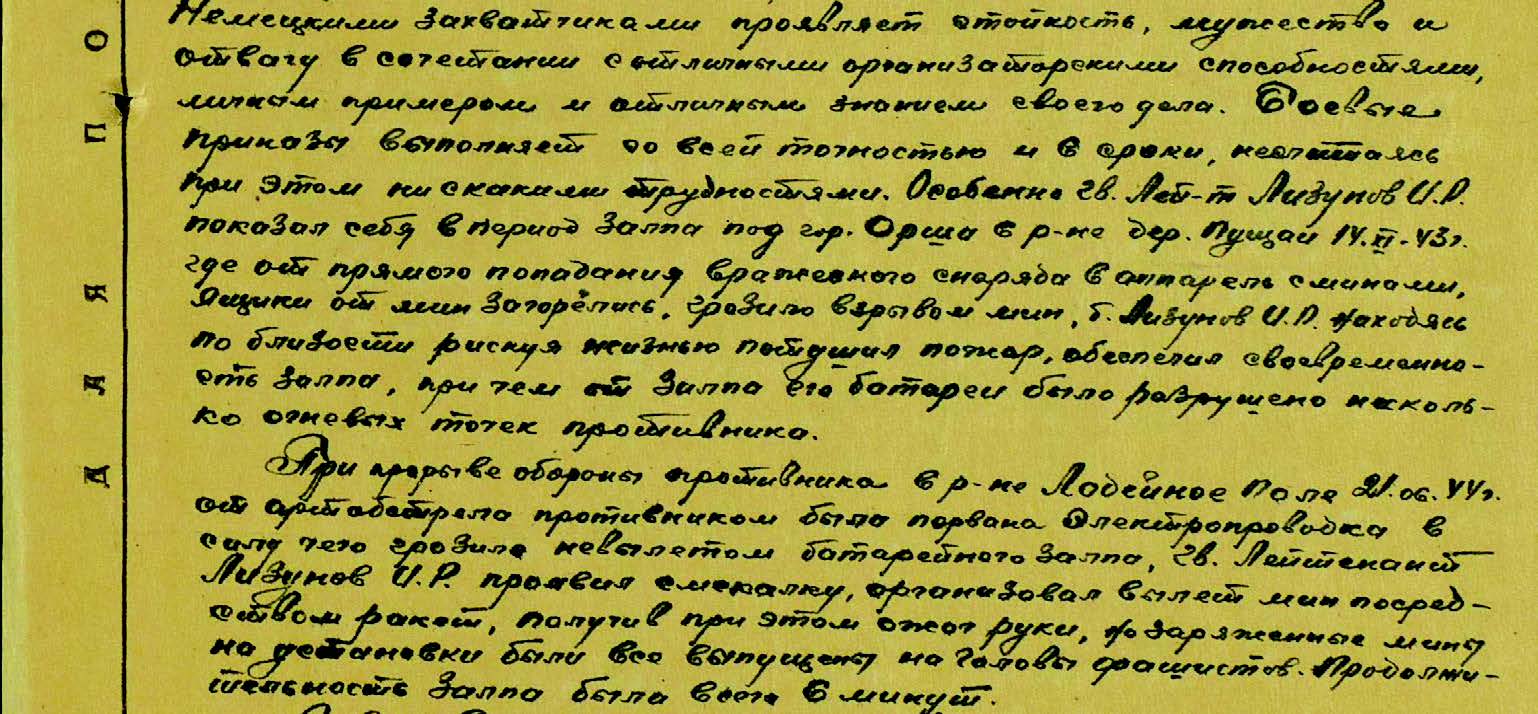 Немецкими захватчиками проявляет стойкость, мужество и
отвагу в сочетании с отличными организаторскими способностями,
личным примером и отличным знанием своего дела. Боевые
приказы выполняет со всей точностью и в сроки, несчитаясь
при этом ни скакими трудностями. Особенно гв. Лей-т Лизунов И.Р.
показал себя в период залпа под гор. Орша в р-не дер. Пущаи 14.XI-43г.
где от прямого попадания вражеского снаряда в аппарель с минами,
ящики от мин загорелись, грозило взрывом мин, т. Лизунов И.Р. находясь
по близости рискуя жизнью потушил пожар, обеспечил своевременно-
сть залпа, при чем от залпа его батареи было разрушено несколь-
ко огневых точек противника.
При прорыве обороны противника в р-не Лодейное Поле 21.06.44г.
от артобстрела противником была порвана электропроводка в
силу чего грозило невылетом батарейного залпа, гв. Лейтенант
Лизунов И.Р. проявил смекалку, организовал вылет мин посред-
ством ракет, получив при этом ожог руки, но заряженные мины
на установки были все выпущены на головы фашистов. Продолжи-
тельность залпа была всего 6 минут.
О
П
Я
Л
Д